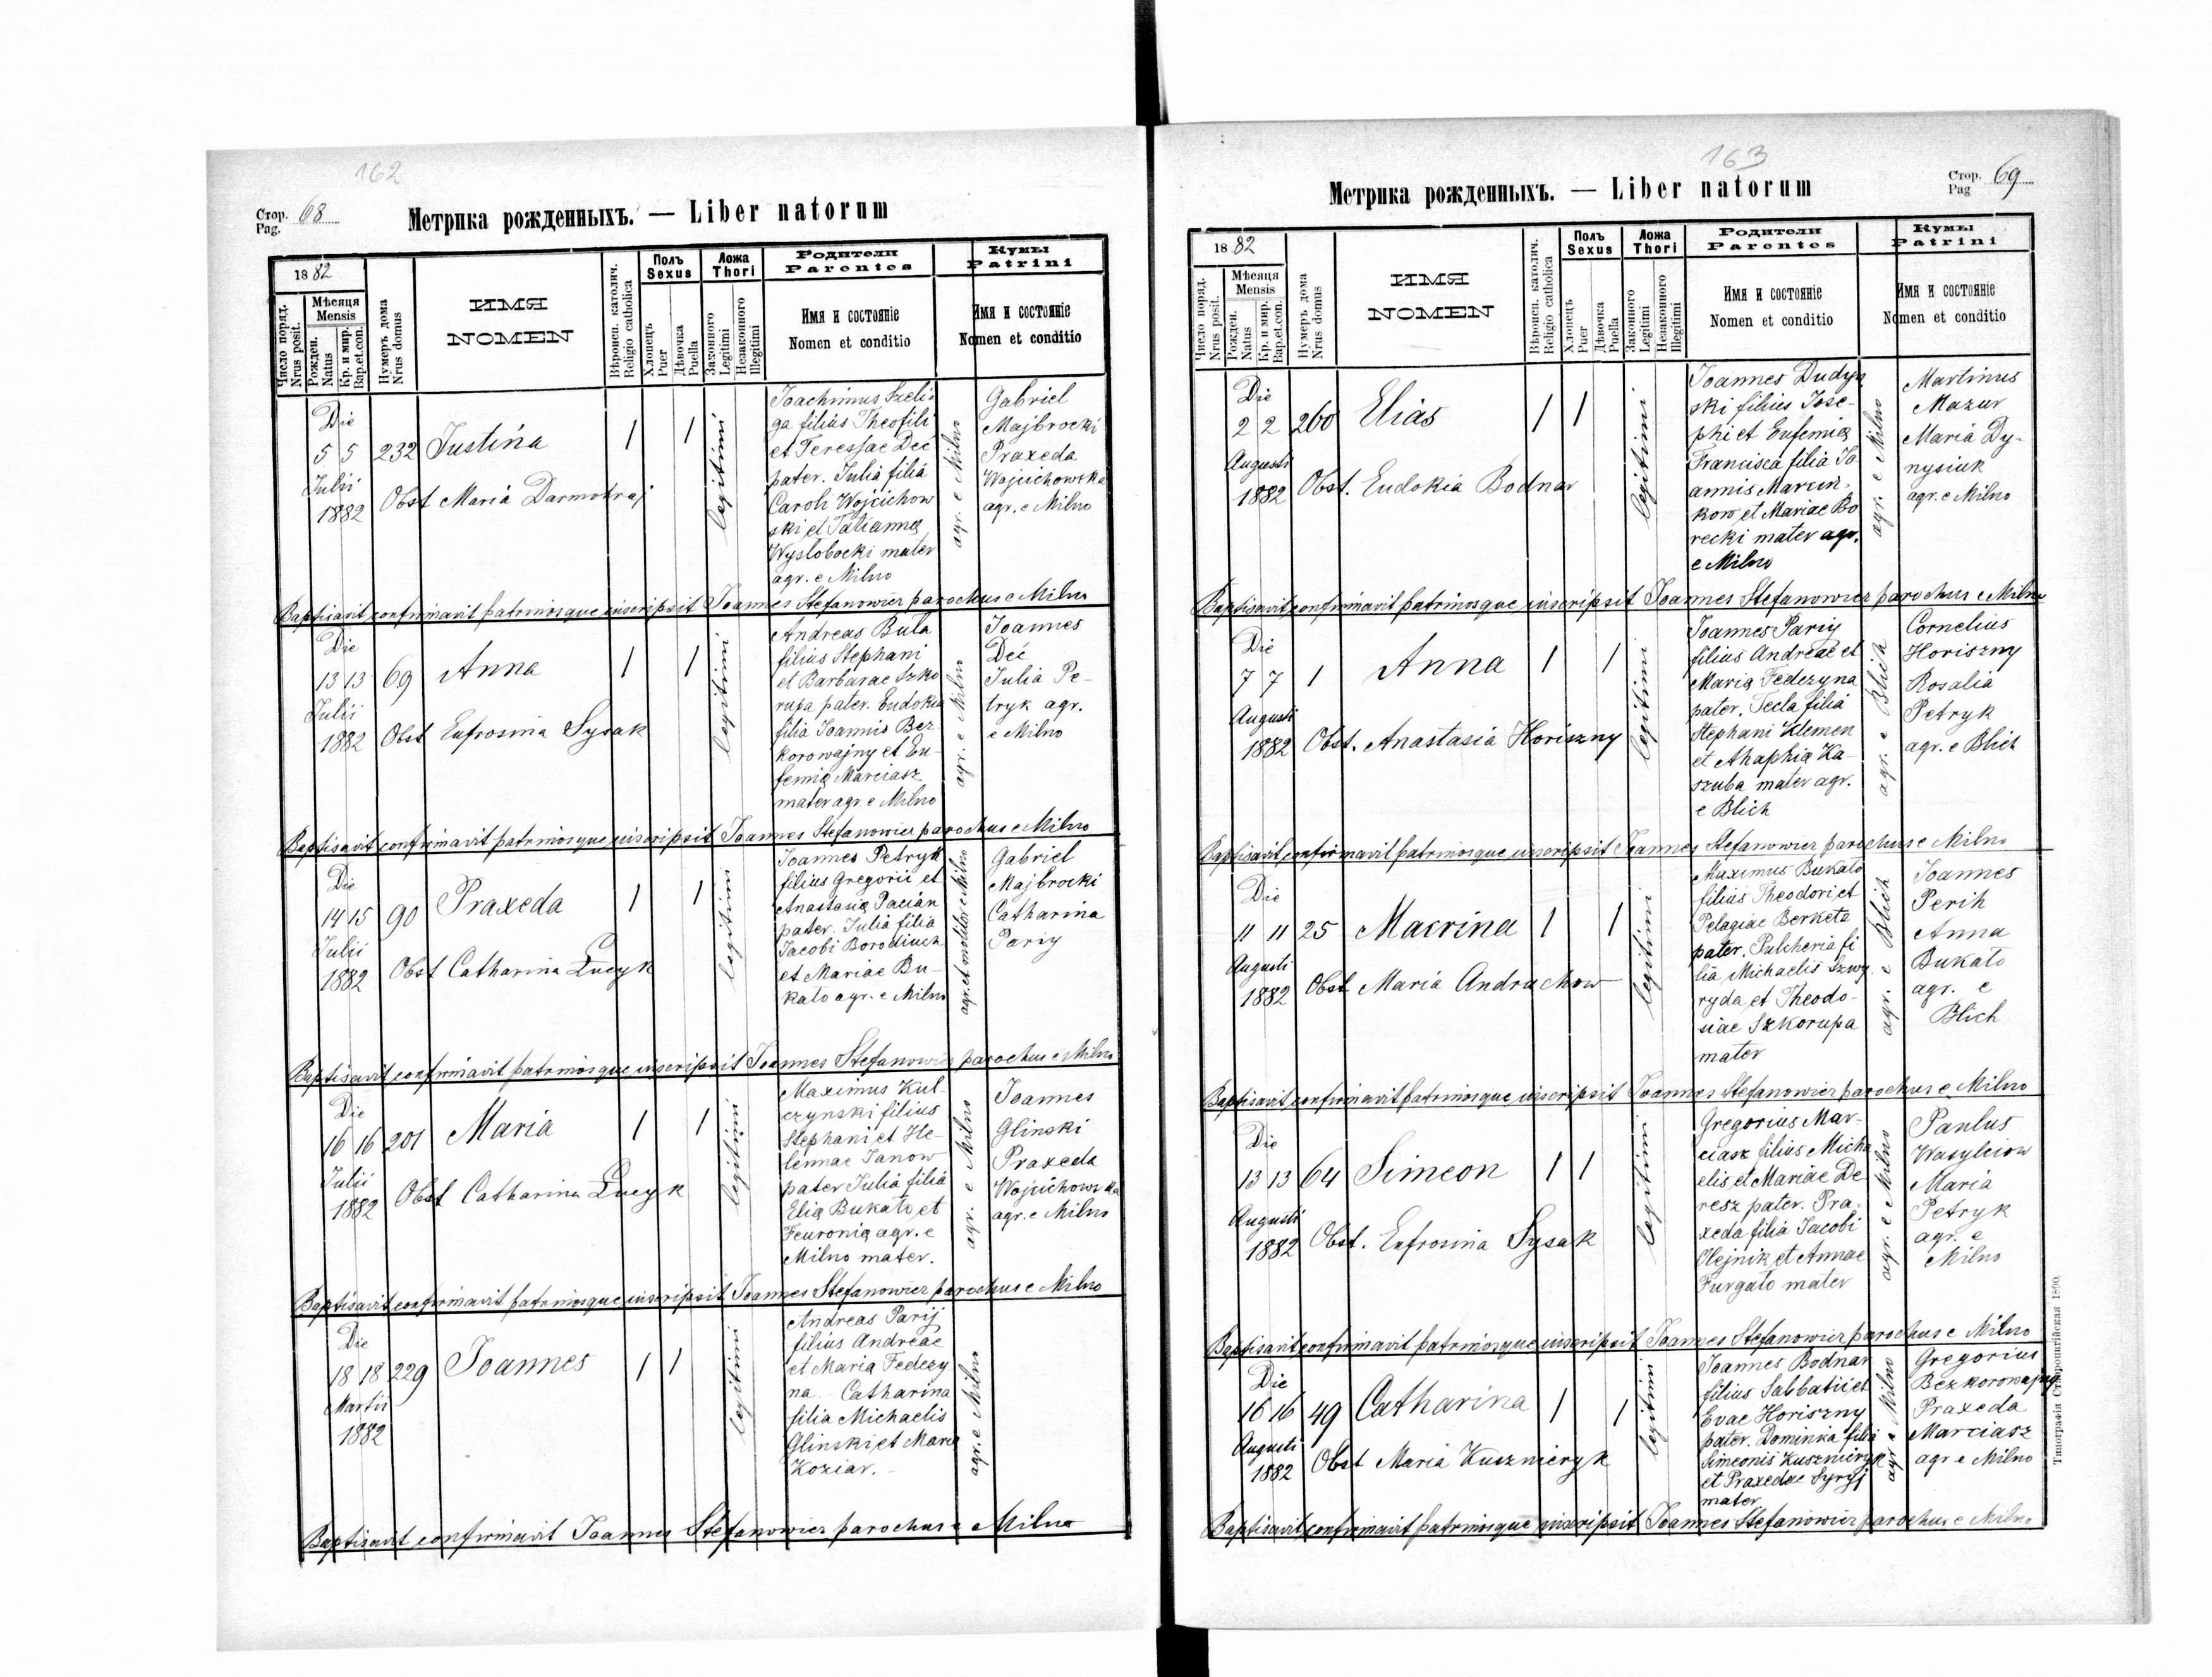 162
Стор. 68
Pag.
Метрика рожденныхъ. — Liber natorum
1882
Число поряд.
Nrus posit.
Мѣсяця
Mensis
Рожден.
Natus
Кр. и мир.
Bap.et.con.
Нумеръ дома
Nrus domus
ИМЯ
NOMEN
Вѣроисп. католич.
Religio catholica
Полъ
Sexus
Хлопецъ
Puer
Дѣвочка
Puella
Ложа
Thori
Законного
Legitimi
Незаконного
Illegitimi
Родители
Parentes
Имя и состояніе
Nomen et conditio
Кумы
Patrini
Имя и состояніе
Nomen et conditio
Die
5 5 232 Justina 1 1
Julii
1882
Obst Maria Darmohraj
legitimi
Joachimus Szeli-
ga filius Theofili
et Teressae Deć
pater. Julia filia
Caroli Wojcichow
ski et Tatianna
Wyslobocki mater
agr. e Milno
agr. e Milno
Gabriel
Majbrocki
Praxeda
Wojcichowska
agr. e Milno
Baptisavit confirmavit patrinosque inscripsit Joannes Stefanowicz parochus e Milno
Die
13 13 69 Anna 1 1
Julii
1882
Obst Eufrosina Sysak
legitimi
Andreas Bula
filius Stephani
et Barbarae Szko
rupa pater. Eudokia
filia Joannis Bez
korowajny et Eu-
femia Marciasz
mater agr. e Milno
agr. e Milno
Joannes
Deć
Julia Pe-
tryk agr.
e Milno
Baptisavit confirmavit patrinosque inscripsit Joannes Stefanowicz parochus e Milno
Die
14 15 90 Praxeda 1 1
Julii
1882
Obst Catharina Lucyk
legitimi
Joannes Petryk
filius Gregorii et
Anastasia Pacian
pater. Julia filia
Jacobi Borodiuch
et Mariae Bu-
kato agr. e Milno
agr. et molitor e Milno
Gabriel
Majbrocki
Catharina
Pariy
Baptisavit confirmavit patrinosque inscripsit Joannes Stefanowicz parochus e Milno
Die
16 16 201 Maria 1 1
Julii
1882
Obst Catharina Lucyk
legitimi
Maximus Kul-
czynski filius
Stephani et He-
lennae Janow
pater Julia filia
Elia Bukato et
Feuronia agr. e
Milno mater.
agr. e Milno
Joannes
Glinski
Praxeda
Wojcichowska
agr. e Milno
Baptisavit confirmavit patrinosque inscripsit Joannes Stefanowicz parochus e Milno
Die
18 18 229 Joannes 1 1
Martii
1882
legitimi
Andreas Parij
filius Andreae
et Maria Fedczy
na. - Catharina
filia Michaelis
Glinski et Maria
Koziar. -
agr. e Milno
Baptisavit confirmavit Joannes Stefanowicz parochus e Milno
163
Метрика рожденныхъ. — Liber natorum
Стор. 69
Pag
1882
Число поряд.
Nrus posit.
Мѣсяця
Mensis
Рожден.
Natus
Кр. и мир.
Bap.et.con.
Нумеръ дома
Nrus domus
ИМЯ
NOMEN
Вѣроисп. католич.
Religio catholica
Полъ
Sexus
Хлопецъ
Puer
Дѣвочка
Puella
Ложа
Thori
Законного
Legitimi
Незаконного
Illegitimi
Родители
Parentes
Имя и состояніе
Nomen et conditio
Кумы
Patrini
Имя и состояніе
Nomen et conditio
Die
2 2 260 Elias 1 1
Augusti
1882
Obst. Eudokia Bodnar
legitimi
Joannes Dudyn
ski filius Jose-
phi et Eufemia
Francisca filia Jo
annis Marcin-
kow et Mariae Bo
recki mater agr.
e Milno
agr. e Milno
Martinus
Mazur
Maria Dy-
nysiuk
agr. e Milno
Baptisavit confirmavit patrinosque inscripsit Joannes Stefanowicz parochus e Milno
Die
7 7 1 Anna 1 1
Augusti
1882
Obst. Anastasia Horiszny
legitimi
Joannes Pariy
filius Andreae et
Maria Fedczyna
pater. Tecla filia
Stephani Klemen
et Ahaphia Ka-
szuba mater agr.
e Blich
agr. e Blich
Cornelius
Horiszny
Rosalia
Petryk
agr. e Blich
Baptisavit confirmavit patrinosque inscripsit Joannes Stefanowicz parochus e Milno
Die
11 11 25 Macrina 1 1
Augusti
1882
Obst Maria Andruchow
legitimi
Maximus Bukato
filius Theodori et
Pelagiae Berketa
pater. Pulcheria fi
lia Michaelis Szwy
ryda et Theodo-
siae Szkorupa
mater
agr. e Blich
Joannes
Perih
Anna
Bukato
agr. e
Blich
Baptisavit confirmavit patrinosque inscripsit Joannes Stefanowicz parochus e Milno
Die
13 13 64 Simeon 1 1
Augusti
1882
Obst. Eufrosina Sysak
legitimi
Gregorius Mar-
ciasz filius Micha
elis et Mariae De
resz pater. Pra-
xeda filia Jacobi
Olejnik et Annae
Furgato mater
agr. e Milno
Paulus
Wasylciow
Maria
Petryk
agr. e
Milno
Baptisavit confirmavit patrinosque inscripsit Joannes Stefanowicz parochus e Milno
Die
16 16 49 Catharina 1 1
Augusti
1882
Obst Maria Kuszmeryk
legitimi
Joannes Bodnar
filius Sabbatii et
Evae Horiszny
pater. Dominka filia
Simeonis Kuszmeryk
et Praxedae Syryj
mater
agr e Milno
Gregorius
Bezkorowajny
Praxeda
Marciasz
agr e Milno
Baptisavit confirmavit patrinosque inscripsit Joannes Stefanowicz parochus e Milno
Типографія Ставропигійская 1890.